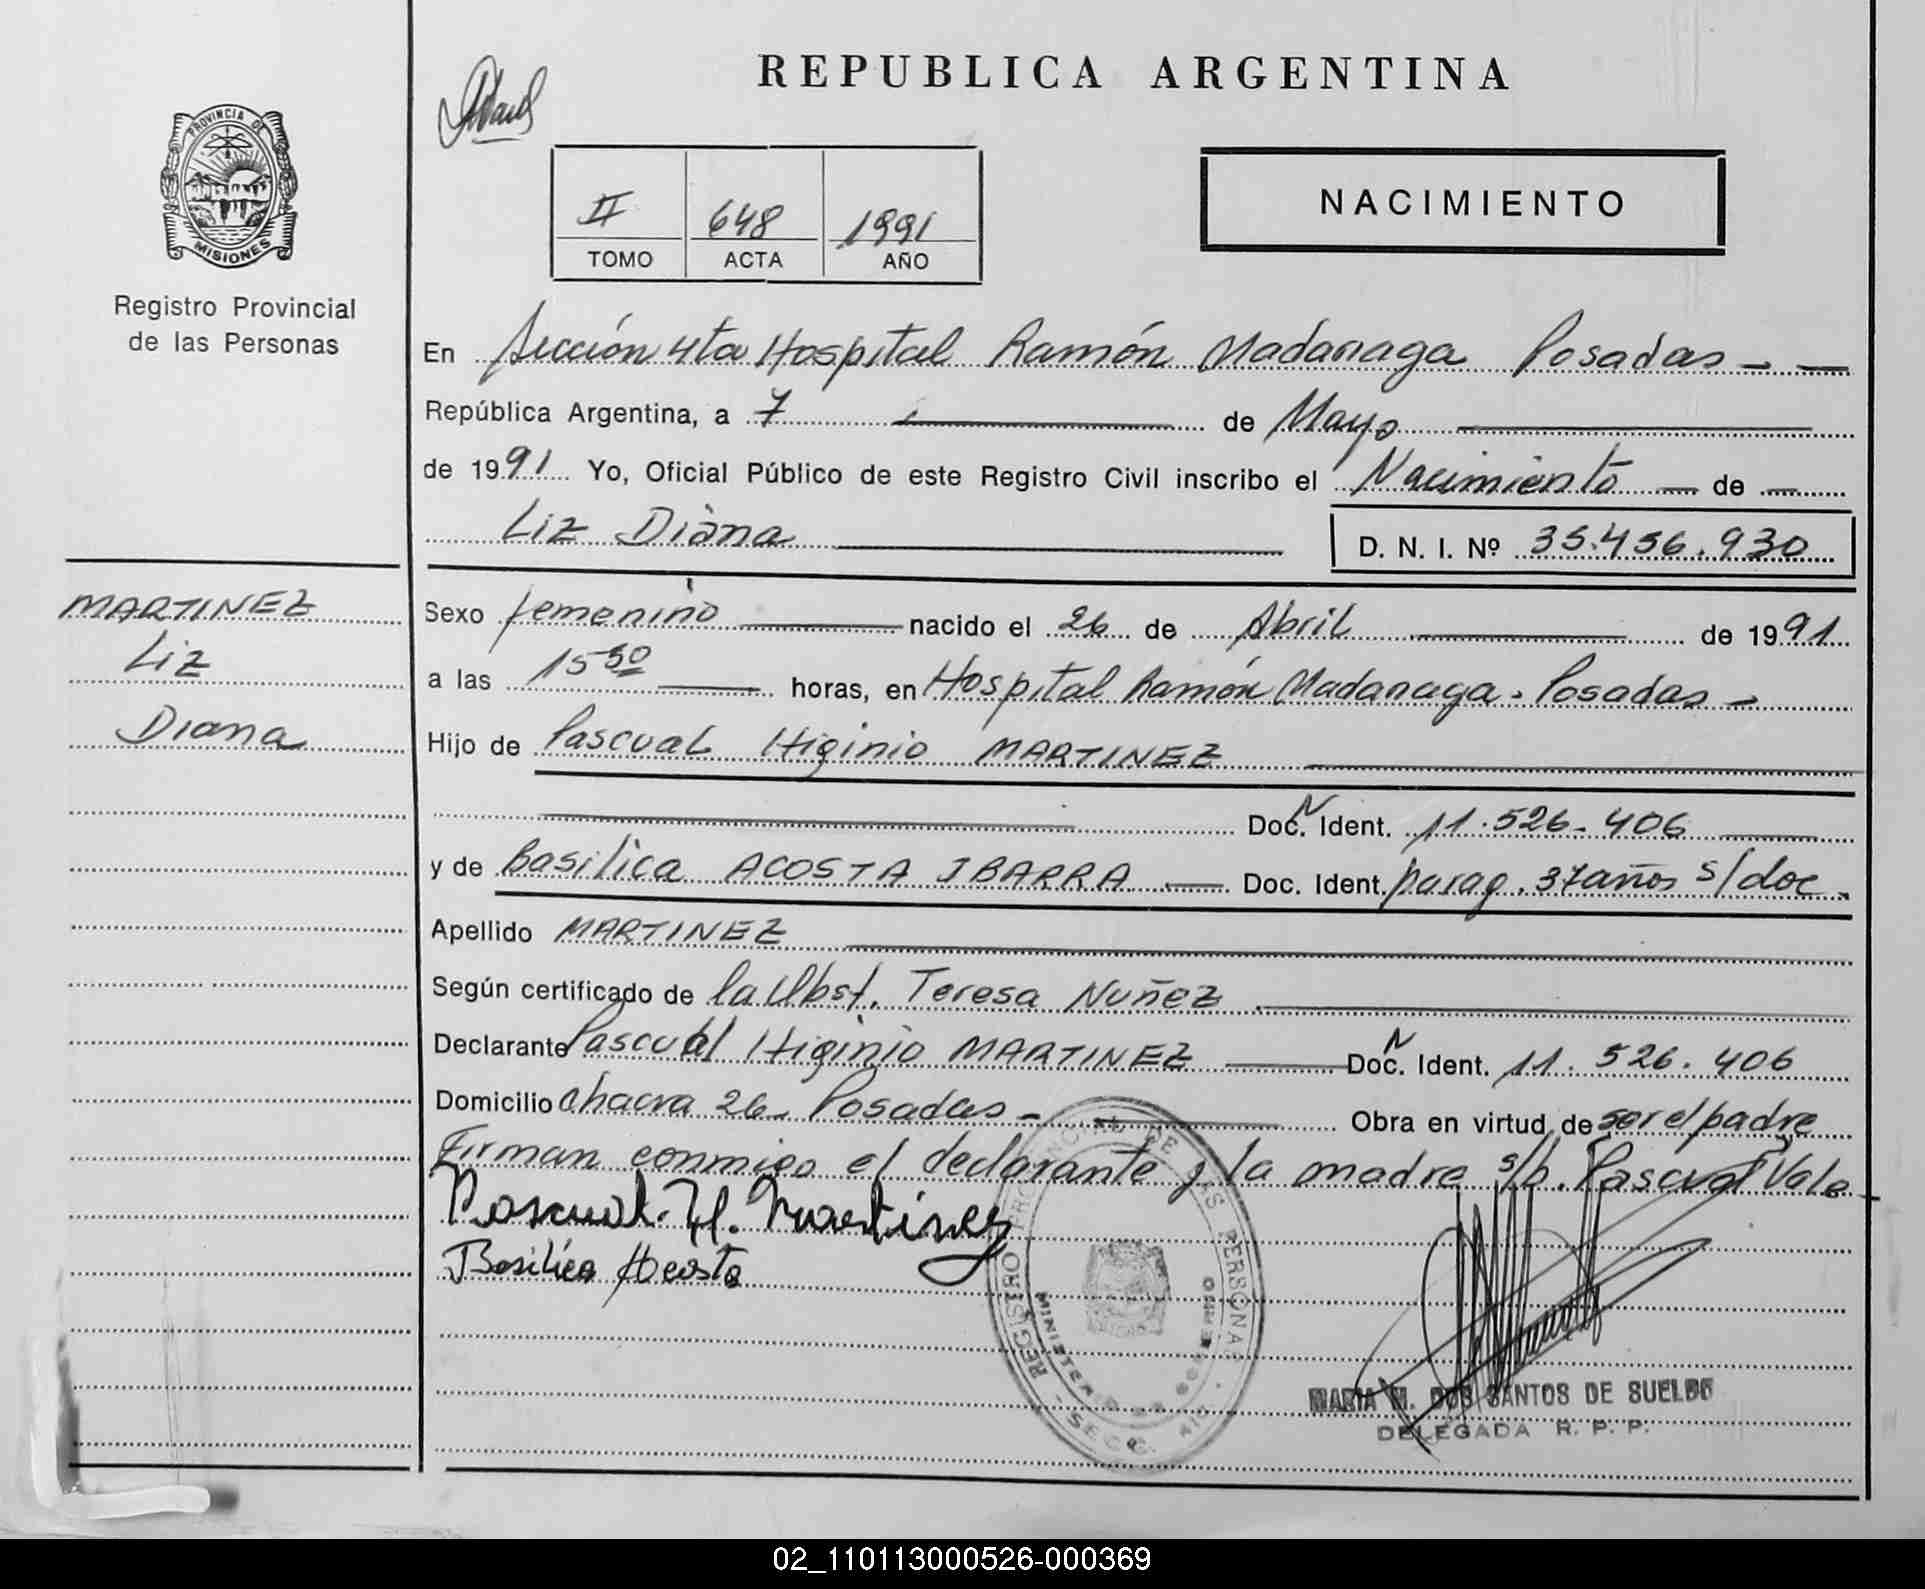 REPUBLICA ARGENTINA
PROVINCIA DE
MISIONES
Registro Provincial
de las Personas
II 648 1991
TOMO ACTA AÑO
NACIMIENTO
En Sección 4ta Hospital Ramón Madariaga Posadas - —
República Argentina, a 7 — de Mayo —
de 1991 Yo, Oficial Público de este Registro Civil inscribo el Nacimiento — de —
Liz Diana — D. N. I. Nº 35.456.930
MARTINEZ
Liz
Diana
Sexo femenino — nacido el 26 de Abril — de 1991
a las 15 30 — horas, en Hospital Ramón Madariaga - Posadas -
Hijo de Pascual Higinio MARTINEZ —
— Doc. N Ident. 11.526.406 —
y de Basilica ACOSTA IBARRA — Doc. Ident. parag. 37 años s/doc.
Apellido MARTINEZ —
Según certificado de la Obst. Teresa Nuñez —
Declarante Pascual Higinio MARTINEZ — Doc. N Ident. 11.526.406
Domicilio Chacra 26 - Posadas - — Obra en virtud de ser el padre
Firman conmigo el declarante y la madre s/b. Pascual Vale -
Pascual. H. Martinez
Basilica Acosta
REGISTRO PROVINCIAL DE LAS PERSONAS
MINISTERIO DE GOBIERNO
SECC.
MARIA M. DOS SANTOS DE SUELDO
DELEGADA R. P. P.
02_110113000526-000369